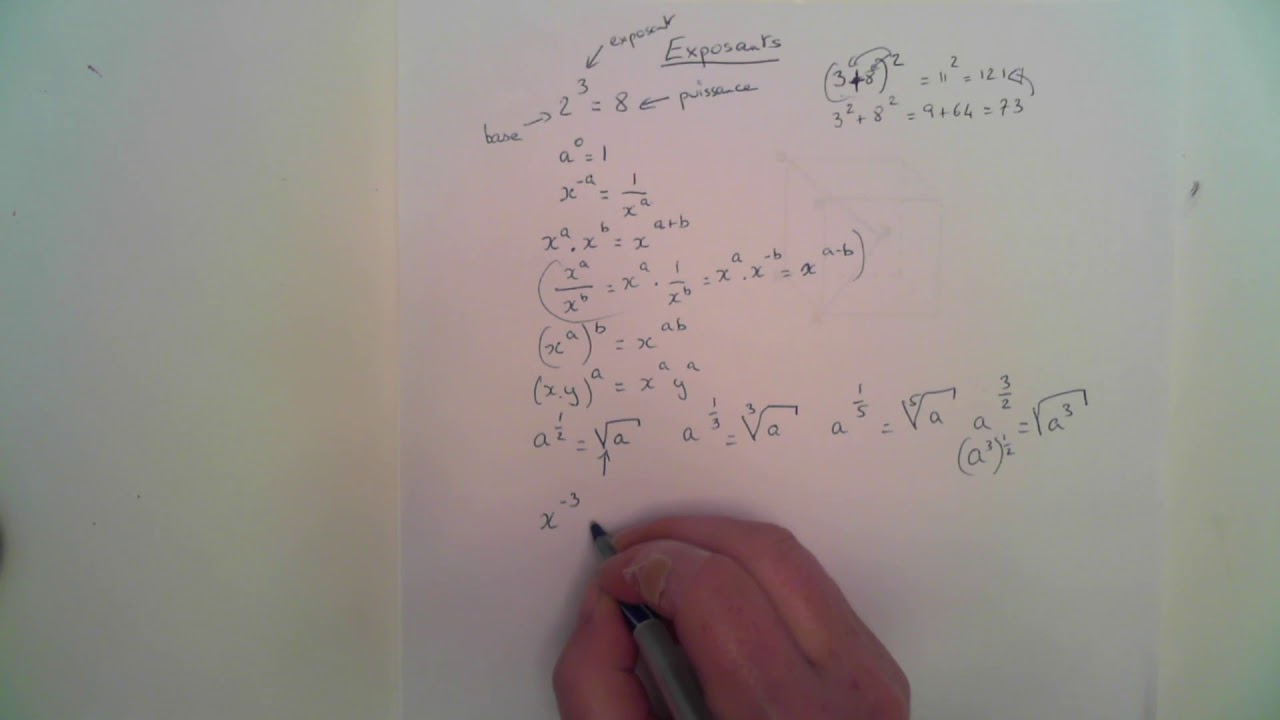 Exposants
exposant
2³ = 8 ← puissance
base →
(3+8)² = 11² = 121
3² + 8² = 9 + 64 = 73
a⁰ = 1
x⁻ᵃ = 1/xᵃ
xᵃ . xᵇ = xᵃ⁺ᵇ
(xᵃ/xᵇ = xᵃ . 1/xᵇ = xᵃ . x⁻ᵇ = xᵃ⁻ᵇ)
(xᵃ)ᵇ = xᵃᵇ
(x.y)ᵃ = xᵃyᵃ
a^(1/2) = √a a^(1/3) = ³√a a^(1/5) = ⁵√a a^(3/2) = √a³
(a³)^(1/2)
x⁻³